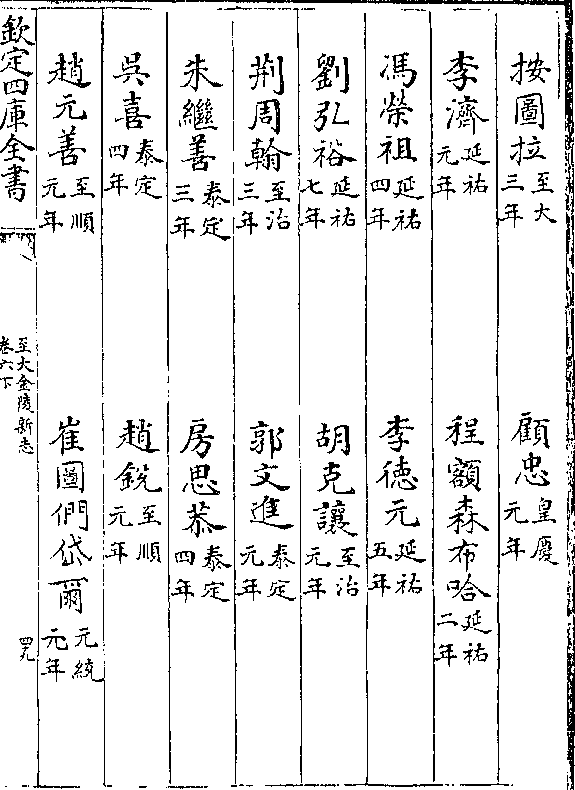 按圖拉至大三年　顧忠皇慶元年
李濟延祐元年　程額森布哈延祐二年
馮榮祖延祐四年　李德元延祐五年
劉弘裕延祐七年　胡克讓至治元年
荆周翰至治三年　郭文進泰定元年
朱繼善泰定三年　房思恭泰定四年
吳喜泰定四年　趙鋭至順元年
趙元善至順元年　崔圖們岱爾元統元年
欽定四庫全書　至大金陵新志卷六下　四九